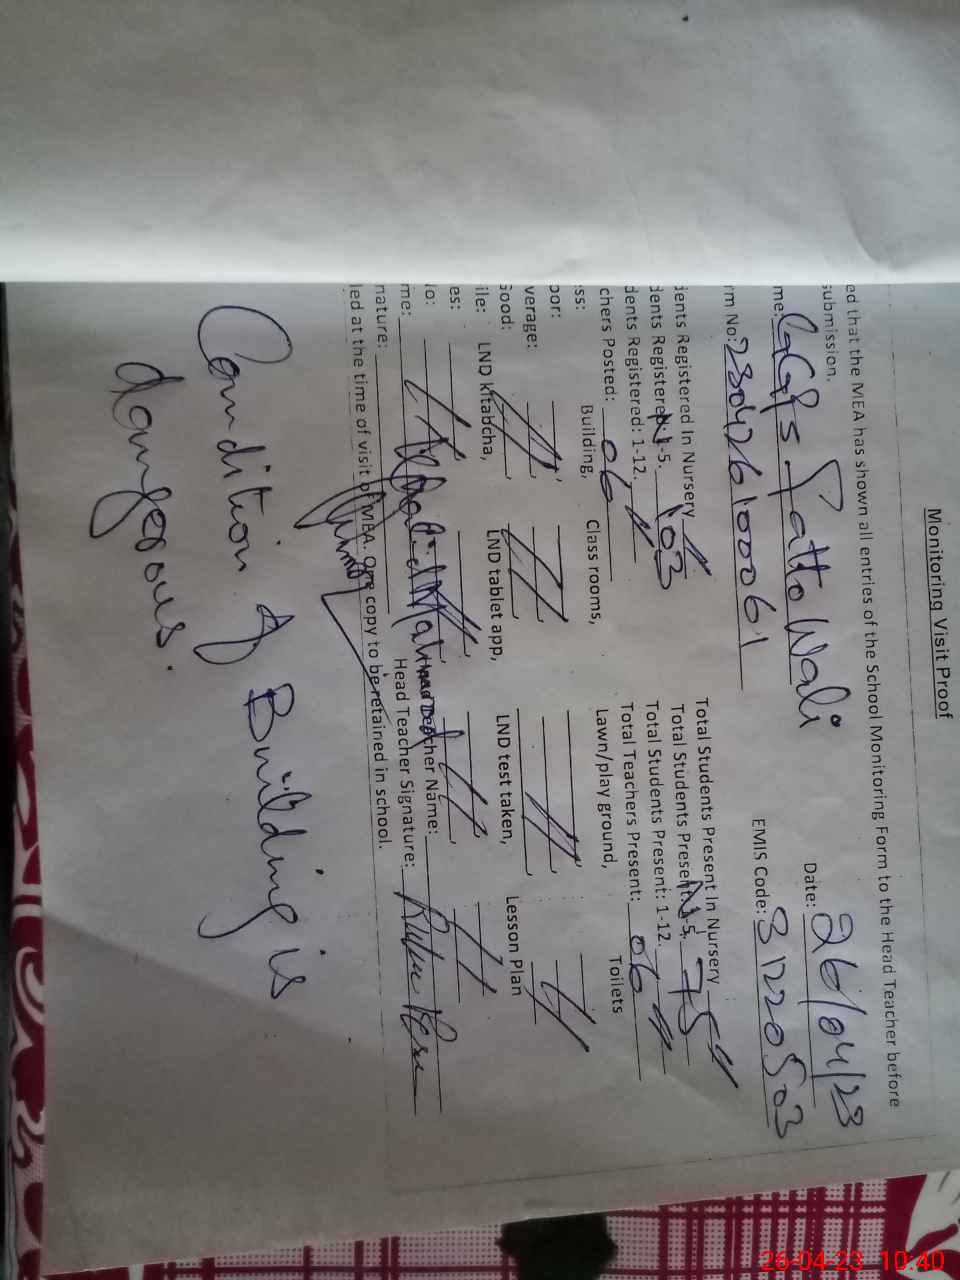 Monitoring Visit Proof
ed that the MEA has shown all entries of the School Monitoring Form to the Head Teacher before
submission.
me: GGPS Patto Wali Date: 26/04/23
rm No: 2304261000061 EMIS Code: 31220503
dents Registered In Nursery Total Students Present In Nursery
dents Registered N-5. 103 Total Students Present N-5. 75
dents Registered: 1-12. Total Students Present: 1-12.
chers Posted: 06 Total Teachers Present: 06
ss: Building, Class rooms, Lawn/play ground, Toilets
oor:
verage:
Good:
ile: LND kitabcha, LND tablet app, LND test taken, Lesson Plan
es:
No:
me: Head Teacher Name:
nature: Head Teacher Signature:
led at the time of visit of MEA. One copy to be retained in school.
Condition of Building is
dangerous.
26-04-23 10:40